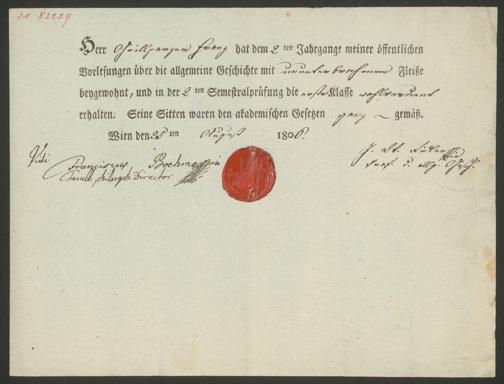 J.N. 82229
Herr Grillparzer Franz hat dem 2 ten Jahrgange meiner öffentlichen
Vorlesungen über die allgemeine Geschichte mit ununterbrochenem Fleiße
beygewohnt, und in der 2 ten Semestralprüfung die erste Klasse
erhalten. Seine Sitten waren den akademischen Gesetzen ganz gemäß.
Wien den ten August 1806.
Vidi
Franciscus Boehme
Director
Prof. d. allg. Gesch.